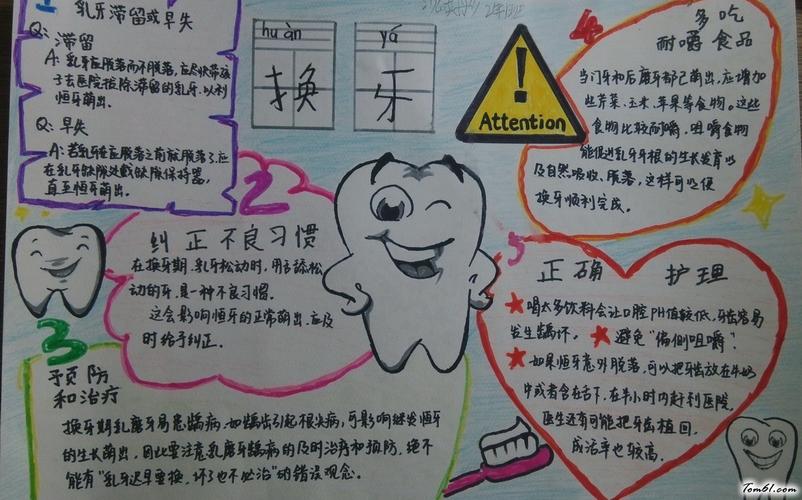 1
乳牙滞留或早失
Q: 滞留
A: 乳牙应脱落而不脱落,应尽快带孩
子去医院拔除滞留的乳牙,以利
恒牙萌出。
Q: 早失
A: 若乳牙在应脱落之前就脱落了,应
在乳牙缺隙处戴缺隙保持器,
直至恒牙萌出。
huàn yá
换牙
Attention
4
多吃
耐嚼食品
当门牙和后磨牙都已萌出,应增加
些芹菜、玉米、苹果等食物。这些
食物比较耐嚼,咀嚼食物
能促进乳牙牙根的生长发育以
及自然吸收、脱落,这样可以使
换牙顺利完成。
2
纠正不良习惯
在换牙期,乳牙松动时,用舌舔松
动的牙,是一种不良习惯。
这会影响恒牙的正常萌出,应及
时给予纠正。
3
预防
和治疗
换牙期乳磨牙易患龋病,如龋齿引起根尖病,可影响继发恒牙
的生长萌出,因此要注意乳磨牙龋病的及时治疗和预防,绝不
能有“乳牙迟早要换,坏了也不必治”的错误观念。
5
正确 护理
★喝太多饮料会让口腔PH值较低,牙齿容易
发生龋坏。 ★避免“偏侧咀嚼”.
★如果恒牙意外脱落,可以把牙齿放在牛奶
中或者含在舌下,在半小时内赶到医院,
医生还有可能把牙齿植回,
成活率也较高.
Tom61.com